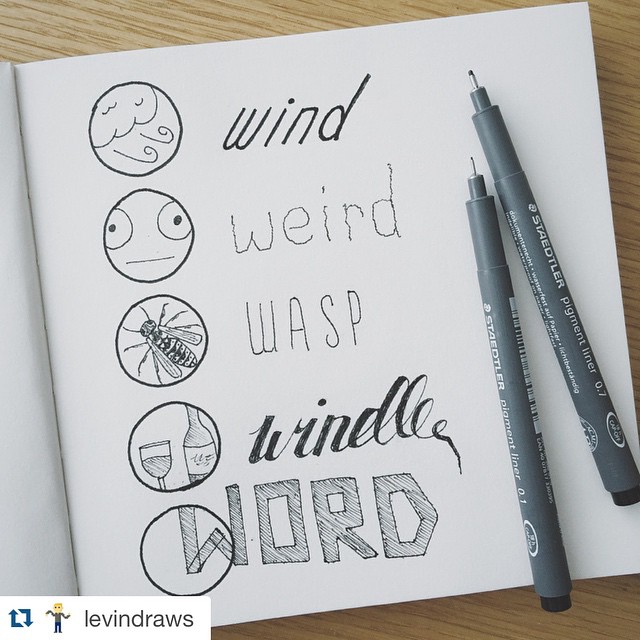 wind
weird
WASP
windle
WORD
STAEDTLER pigment liner 0.7
dokumentenecht • wasserfest auf Papier • lichtbeständig
STAEDTLER pigment liner 0.1
levindraws